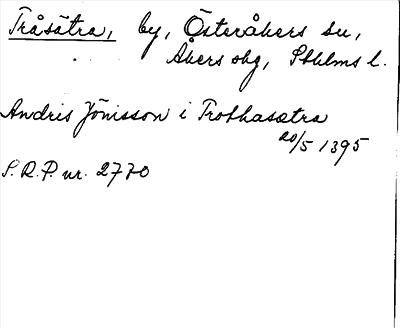 Tråsätra, by, Österåkers sn,
Åkers skg, Sthlms l.
Andris Jönisson i Trothasætra
20/5 1395
S.R.P. nr. 2770